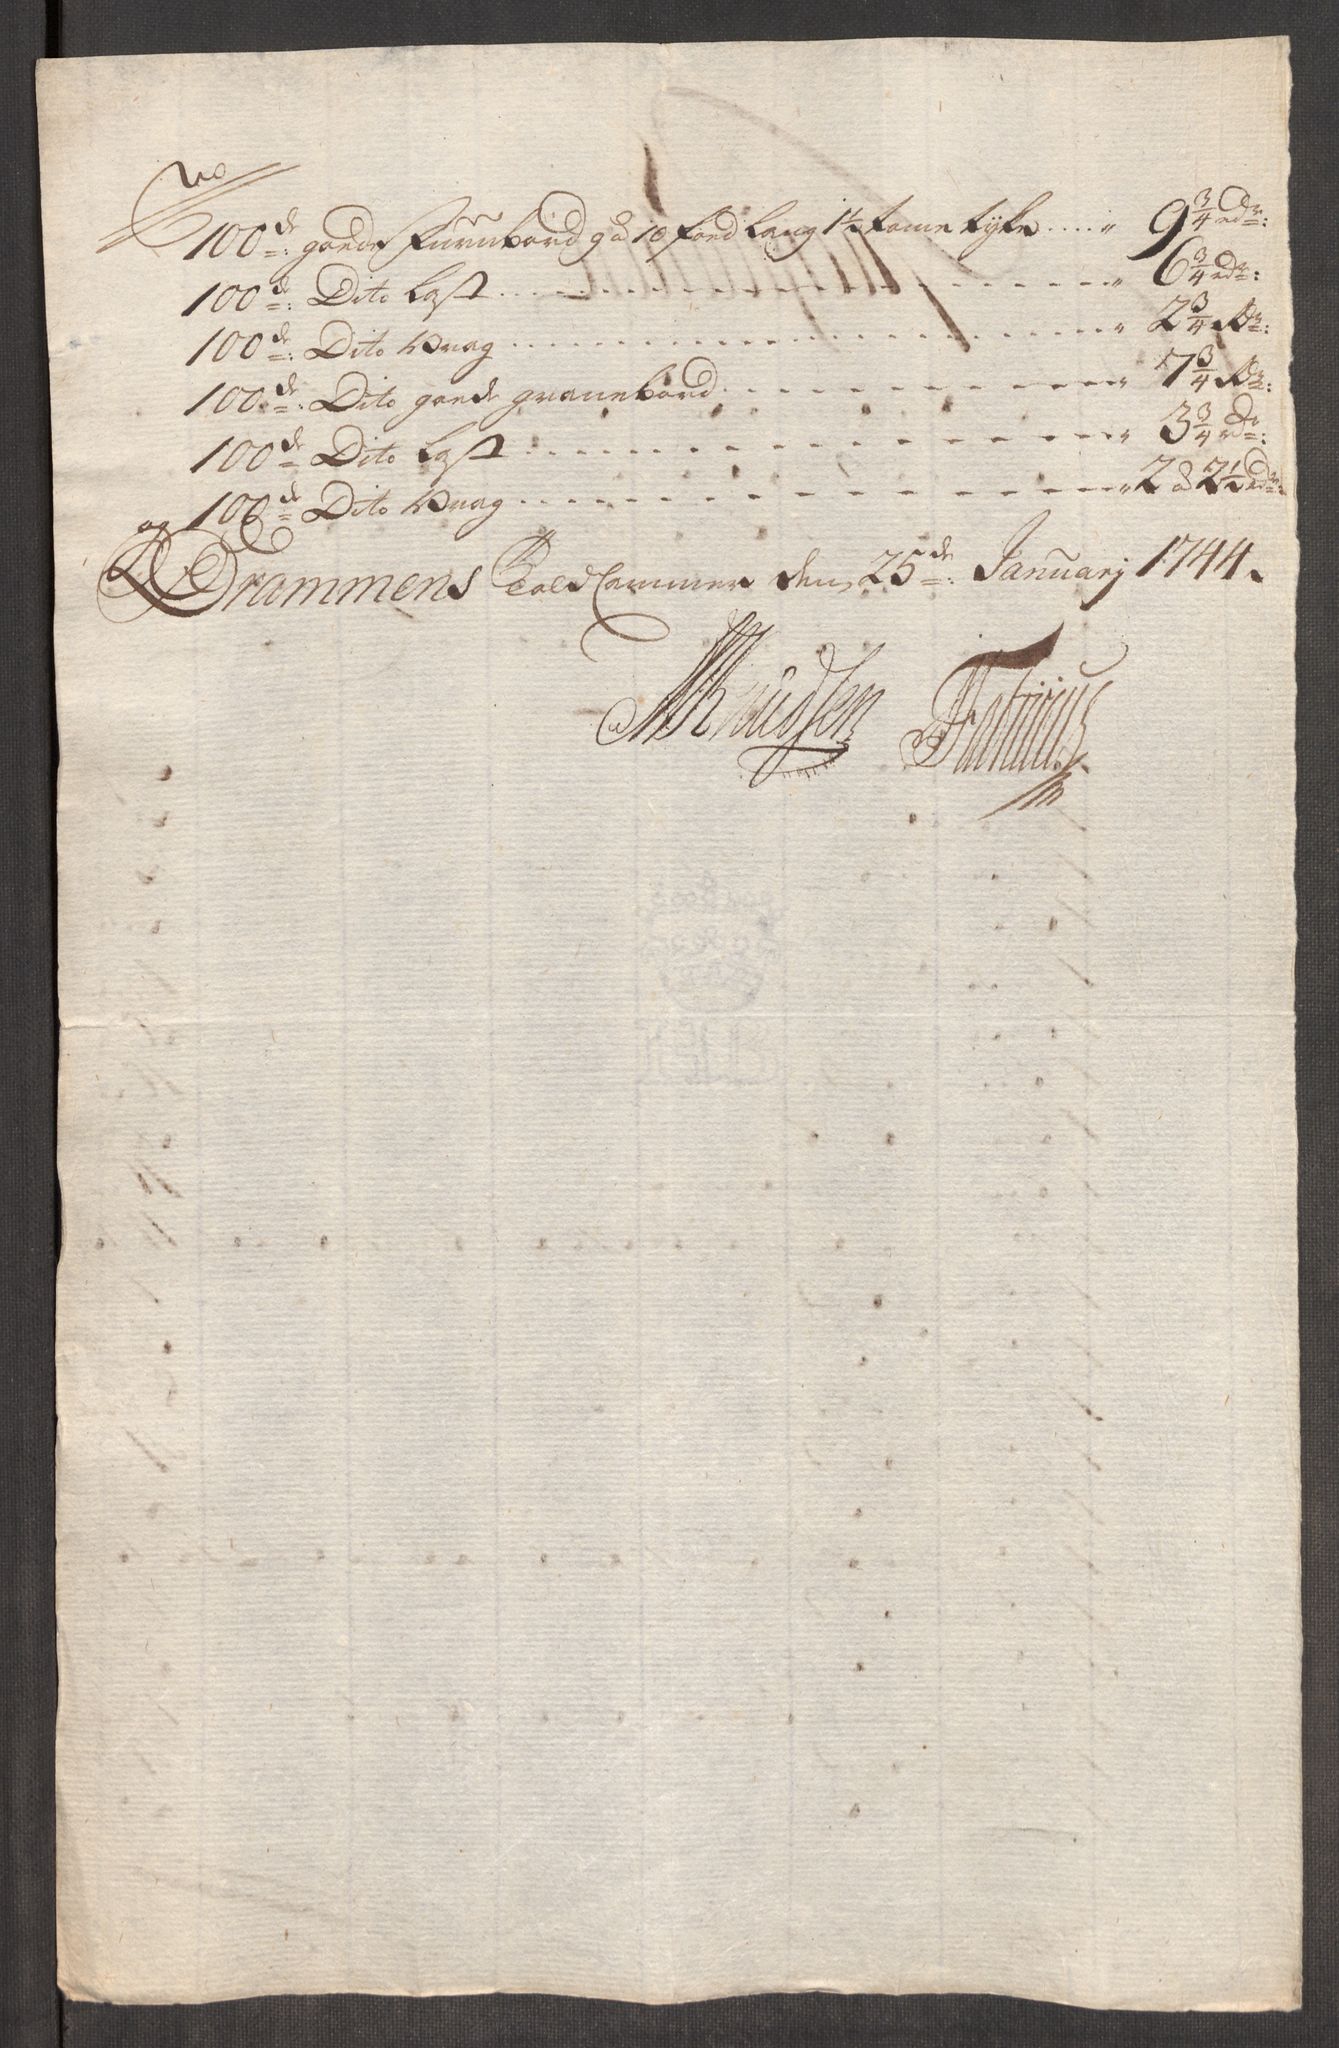 100de: goede Furrubord 9 á 10 foed lang 1½ tome tyke .... 9¾ rdr:
100de: Dito Last .... 6¾ rdr:
100de: Dito Vrag .... 2¾ Rr:
100de: Dito goede granebord .... 7¾ Rr:
100de Dito Last .... 3¾ rdr:
100de Dito Vrag .... 2 á 2½ rdr.
Drammens Told Cammer den 25de: January 1744.
Knudsen Fabricius